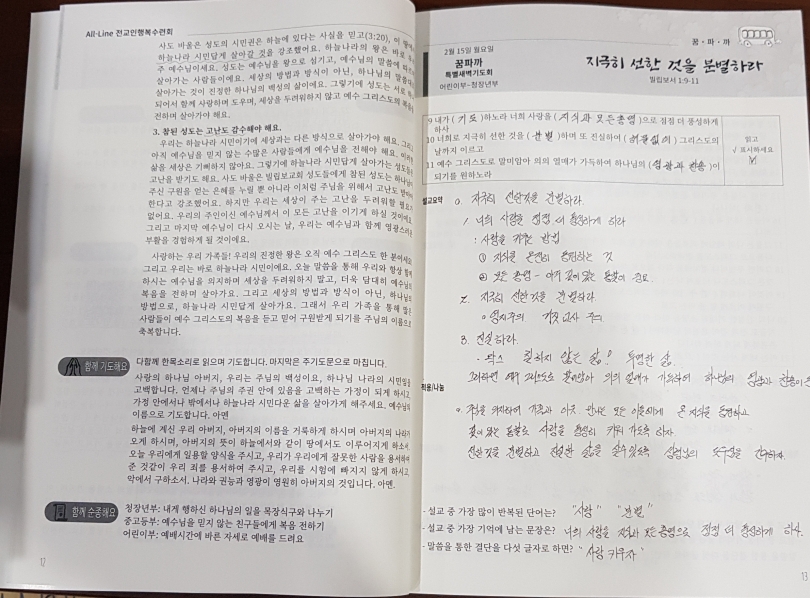 All-Line 전교인행복수련회
사도 바울은 성도의 시민권은 하늘에 있다는 사실을 믿고(3:20), 이 땅에서
하늘나라 시민답게 살아갈 것을 강조했어요. 하늘나라의 왕은 바로 우리
주 예수님이세요. 성도는 예수님을 왕으로 섬기고, 예수님의 말씀에 따라
살아가는 사람들이에요. 세상의 방법과 방식이 아닌, 하나님의 말씀을
살아가는 것이 진정한 하나님의 백성의 삶이에요. 그렇기에 성도는 서로
되어서 함께 사랑하며 도우며, 세상을 두려워하지 않고 예수 그리스도의 복음을
전하며 살아가요.
3. 참된 성도는 고난도 감수해야 해요.
우리는 하늘나라 시민이기에 세상과는 다른 방식으로 살아가야 해요. 그리고
아직 예수님을 믿지 않는 수많은 사람들에게 예수님을 전해야 해요. 이러한
삶을 세상은 기뻐하지 않아요. 그렇기에 하늘나라 시민답게 살아가는 성도들은
고난을 받기도 해요. 사도 바울은 빌립보교회 성도들에게 참된 성도는 하나님이
주신 구원을 얻는 은혜를 누릴 뿐 아니라 이처럼 주님을 위해서 고난도 받아야
한다고 강조했어요. 하지만 우리는 세상이 주는 고난을 두려워할 필요가
없어요. 우리의 주인이신 예수님께서 이 모든 고난을 이기게 하실 것이에요.
그리고 마지막 예수님이 다시 오시는 날, 우리는 예수님과 함께 영광스러운
부활을 경험하게 될 것이에요.
사랑하는 우리 가족들! 우리의 진정한 왕은 오직 예수 그리스도 한 분이세요.
그리고 우리는 바로 하늘나라 시민이에요. 오늘 말씀을 통해 우리와 항상 함께
하시는 예수님을 의지하며 세상을 두려워하지 말고, 더욱 담대히 예수님의
복음을 전하며 살아가요. 그리고 세상의 방법과 방식이 아닌, 하나님의
방법으로, 하늘나라 시민답게 살아가요. 그래서 우리 가족을 통해 많은
사람들이 예수 그리스도의 복음을 듣고 믿어 구원받게 되기를 주님의 이름으로
축복합니다.
함께 기도해요 다함께 한목소리로 읽으며 기도합니다. 마지막은 주기도문으로 마칩니다.
사랑의 하나님 아버지, 우리는 주님의 백성이요, 하나님 나라의 시민임을
고백합니다. 언제나 주님의 주권 안에 있음을 고백하는 가정이 되게 하시고,
가정 안에서나 밖에서나 하늘나라 시민다운 삶을 살아가게 해주세요. 예수님의
이름으로 기도합니다. 아멘
하늘에 계신 우리 아버지, 아버지의 이름을 거룩하게 하시며 아버지의 나라가
오게 하시며, 아버지의 뜻이 하늘에서와 같이 땅에서도 이루어지게 하소서.
오늘 우리에게 일용할 양식을 주시고, 우리가 우리에게 잘못한 사람을 용서하여
준 것같이 우리 죄를 용서하여 주시고, 우리를 시험에 빠지지 않게 하시고,
악에서 구하소서. 나라와 권능과 영광이 영원히 아버지의 것입니다. 아멘.
함께 순종해요 청장년부: 내게 행하신 하나님의 일을 목장식구와 나누기
중고등부: 예수님을 믿지 않는 친구들에게 복음 전하기
어린이부: 예배시간에 바른 자세로 예배를 드려요
꿈·파·까
2월 15일 월요일
꿈파까
특별새벽기도회
어린이부~청장년부
지극히 선한 것을 분별하라
빌립보서 1:9-11
9 내가 ( 기도 )하노라 너희 사랑을 ( 지식과 모든총명 )으로 점점 더 풍성하게
하사
10 너희로 지극히 선한 것을 ( 분별 )하며 또 진실하여 ( 허물없이 ) 그리스도의
날까지 이르고
11 예수 그리스도로 말미암아 의의 열매가 가득하여 하나님의 ( 영광과 찬송 )이
되기를 원하노라
읽고
√ 표시하세요
√
설교요약 0. 지극히 선한것을 분별하라.
1. 너희 사랑을 점점 더 풍성하게 하라
: 사랑을 키우는 방법
① 지식을 온전히 동원하는 것
② 모든 총명 -
2. 지극히 선한것을 분별하라.
거짓교사 주의
3. 진실하라.
삶! 투명한 삶.
그리하면 예수 그리스도로 말미암아 의의 열매가 가득하여 하나님의 영광과 찬송이
적용/나눔
- 설교 중 가장 많이 반복된 단어는? "사랑" "분별"
- 설교 중 가장 기억에 남는 문장은? 너희 사랑을 지식과 모든총명으로 점점 더 풍성하게 하사.
- 말씀을 통한 결단을 다섯 글자로 하면? "사랑 키우자"
12
13